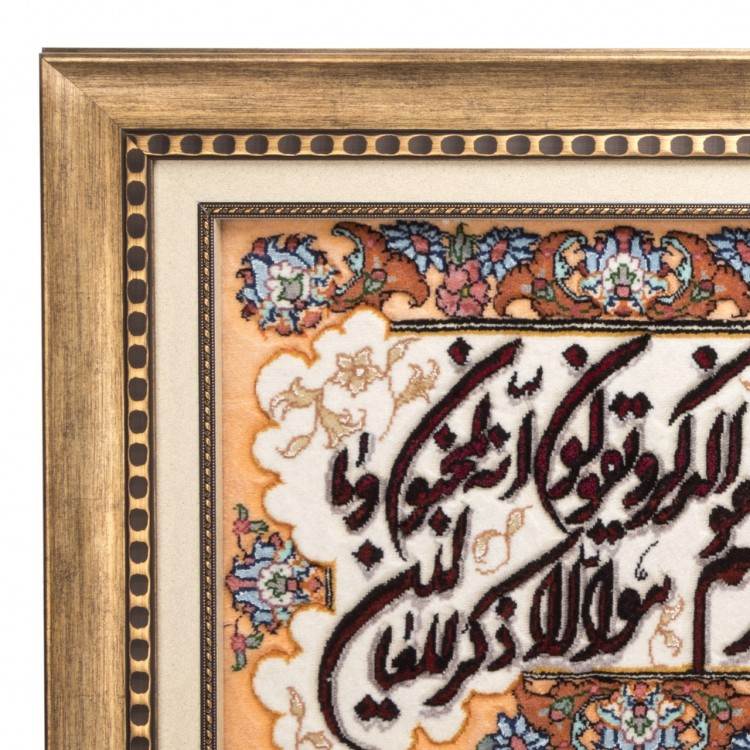 الذکر و یقولون انه لمجنون و ما
هو الا ذکر للعالمین